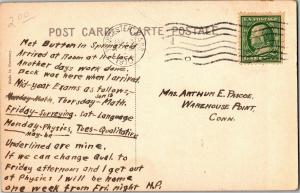 2.00
POST CARD — CARTE POSTALE
Made in Germany
Met Button in Springfield
Arrived at Room at
Another days work done.
Deck was here when I arrived
Mid-year Exams as follows,-
Thursday-Math.
Friday-Surveying. Sat-Language
Monday-Physics, Tues-Qualitative
May be
Underlined are mine.
If we can change Qual to
Friday afternoon and I get out
of Physics I will be home
one week from Fri. night H.P.
Mrs. Arthur E. Pascoe.
Warehouse Point,
Conn.